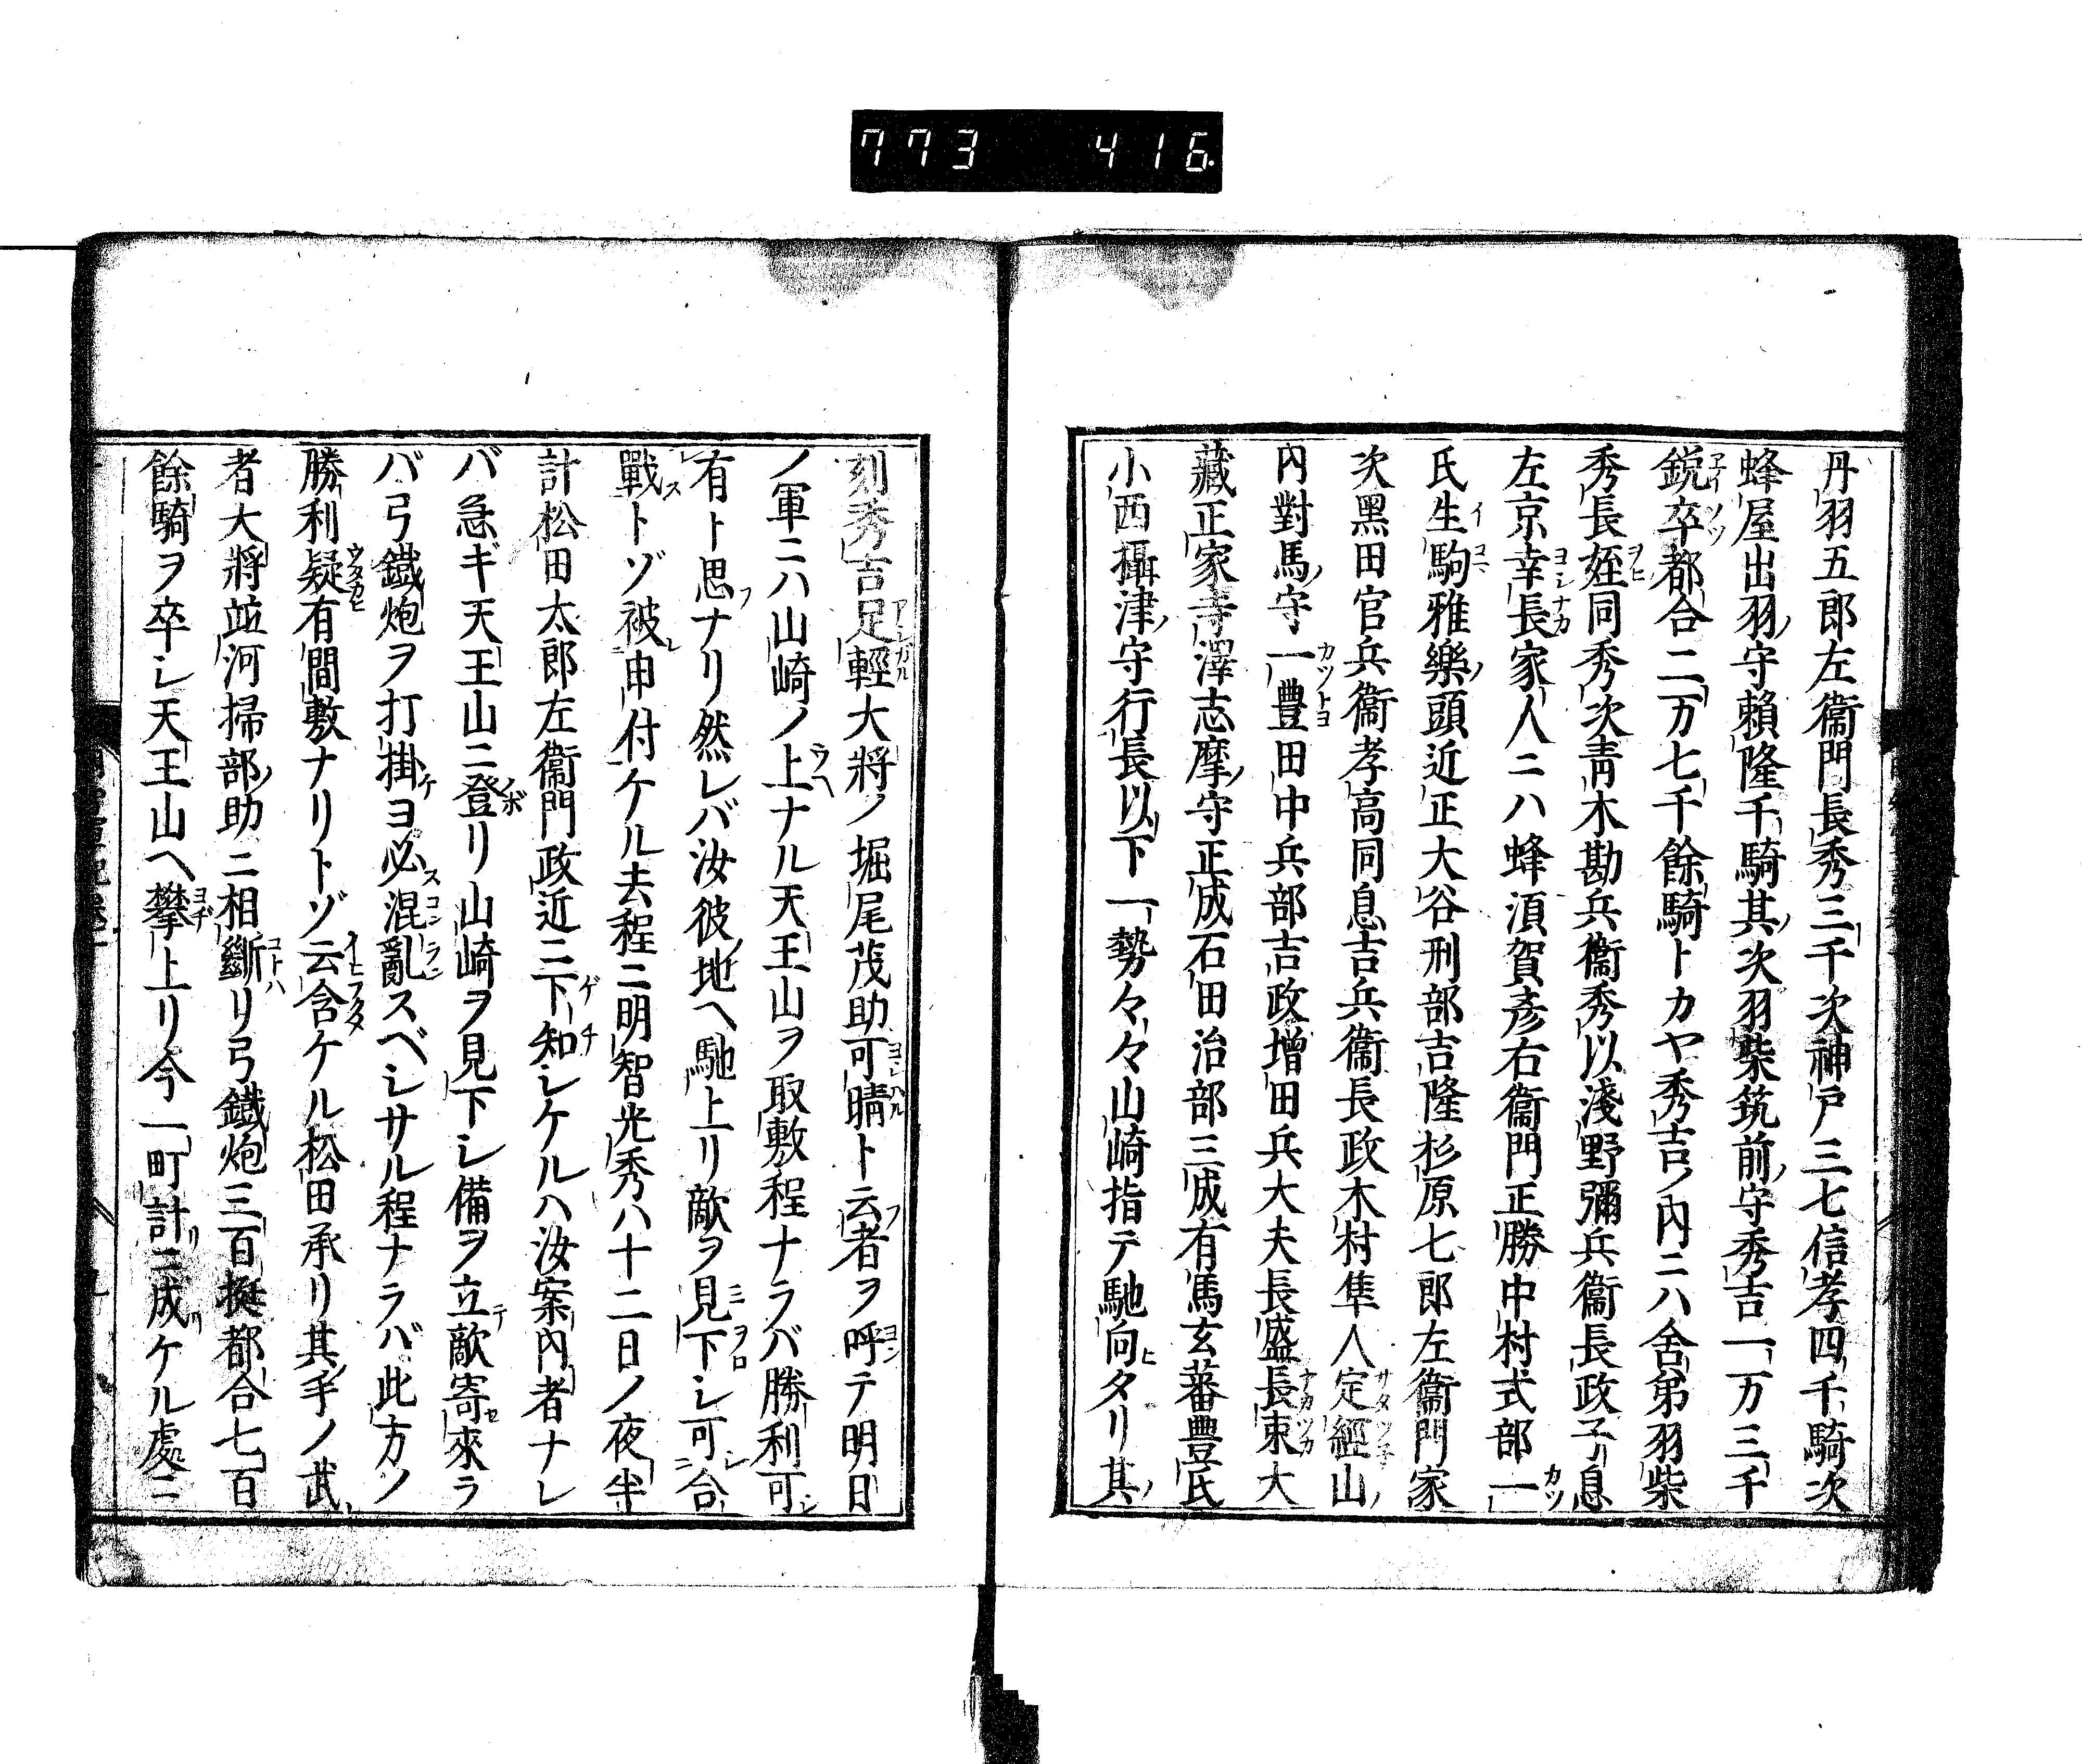 773 416
丹羽五郎左衞門長秀三千次神戸三七信孝四千騎次
蜂屋出羽ノ守賴隆千騎其ノ次羽柴筑前ノ守秀吉一万三千
鋭卒都合二万七千餘騎トカヤ秀吉ノ內ニハ舍弟羽柴
秀長姪同秀次靑木勘兵衞秀以淺野彌兵衞長政子息
左京幸長家人ニハ蜂須賀彥右衞門正勝中村式部一
氏生駒雅樂ノ頭近正大谷刑部吉隆杉原七郎左衞門家
次黑田官兵衞孝高同息吉兵衞長政木村隼人定經山ノ
內對馬ノ守一豐田中兵部吉政增田兵大夫長盛長束大
藏正家寺澤志摩ノ守正成石田治部三成有馬玄蕃豐氏
小西攝津ノ守行長以下一勢々々山崎指テ馳向ヒタリ其ノ
刻秀吉足輕大將ノ堀尾茂助可晴ト云フ者ヲ呼テ明日
ノ軍ニハ山崎ノ上ナル天王山ヲ取敷程ナラバ勝利可シ
有ト思フナリ然レバ汝彼地ヘ馳上リ敵ヲ見下シ可シ合
戰ストゾ被レ申付ケル去程ニ明智光秀ハ十二日ノ夜半
計松田太郎左衞門政近ニ下知シケルハ汝案內者ナレ
バ急ギ天王山ニ登リ山崎ヲ見下シ備ヲ立テ敵寄セ來ラ
バ弓鐵炮ヲ打掛ケヨ必ス混亂スベシサル程ナラバ此方ノ
勝利疑有間敷ナリトゾ云含ケル松田承リ其手ノ武
者大將並河掃部ノ助ニ相斷リ弓鐵炮三百挺都合七百
餘騎ヲ卒シ天王山ヘ攀上リ今一町計リニ成リケル處ニ